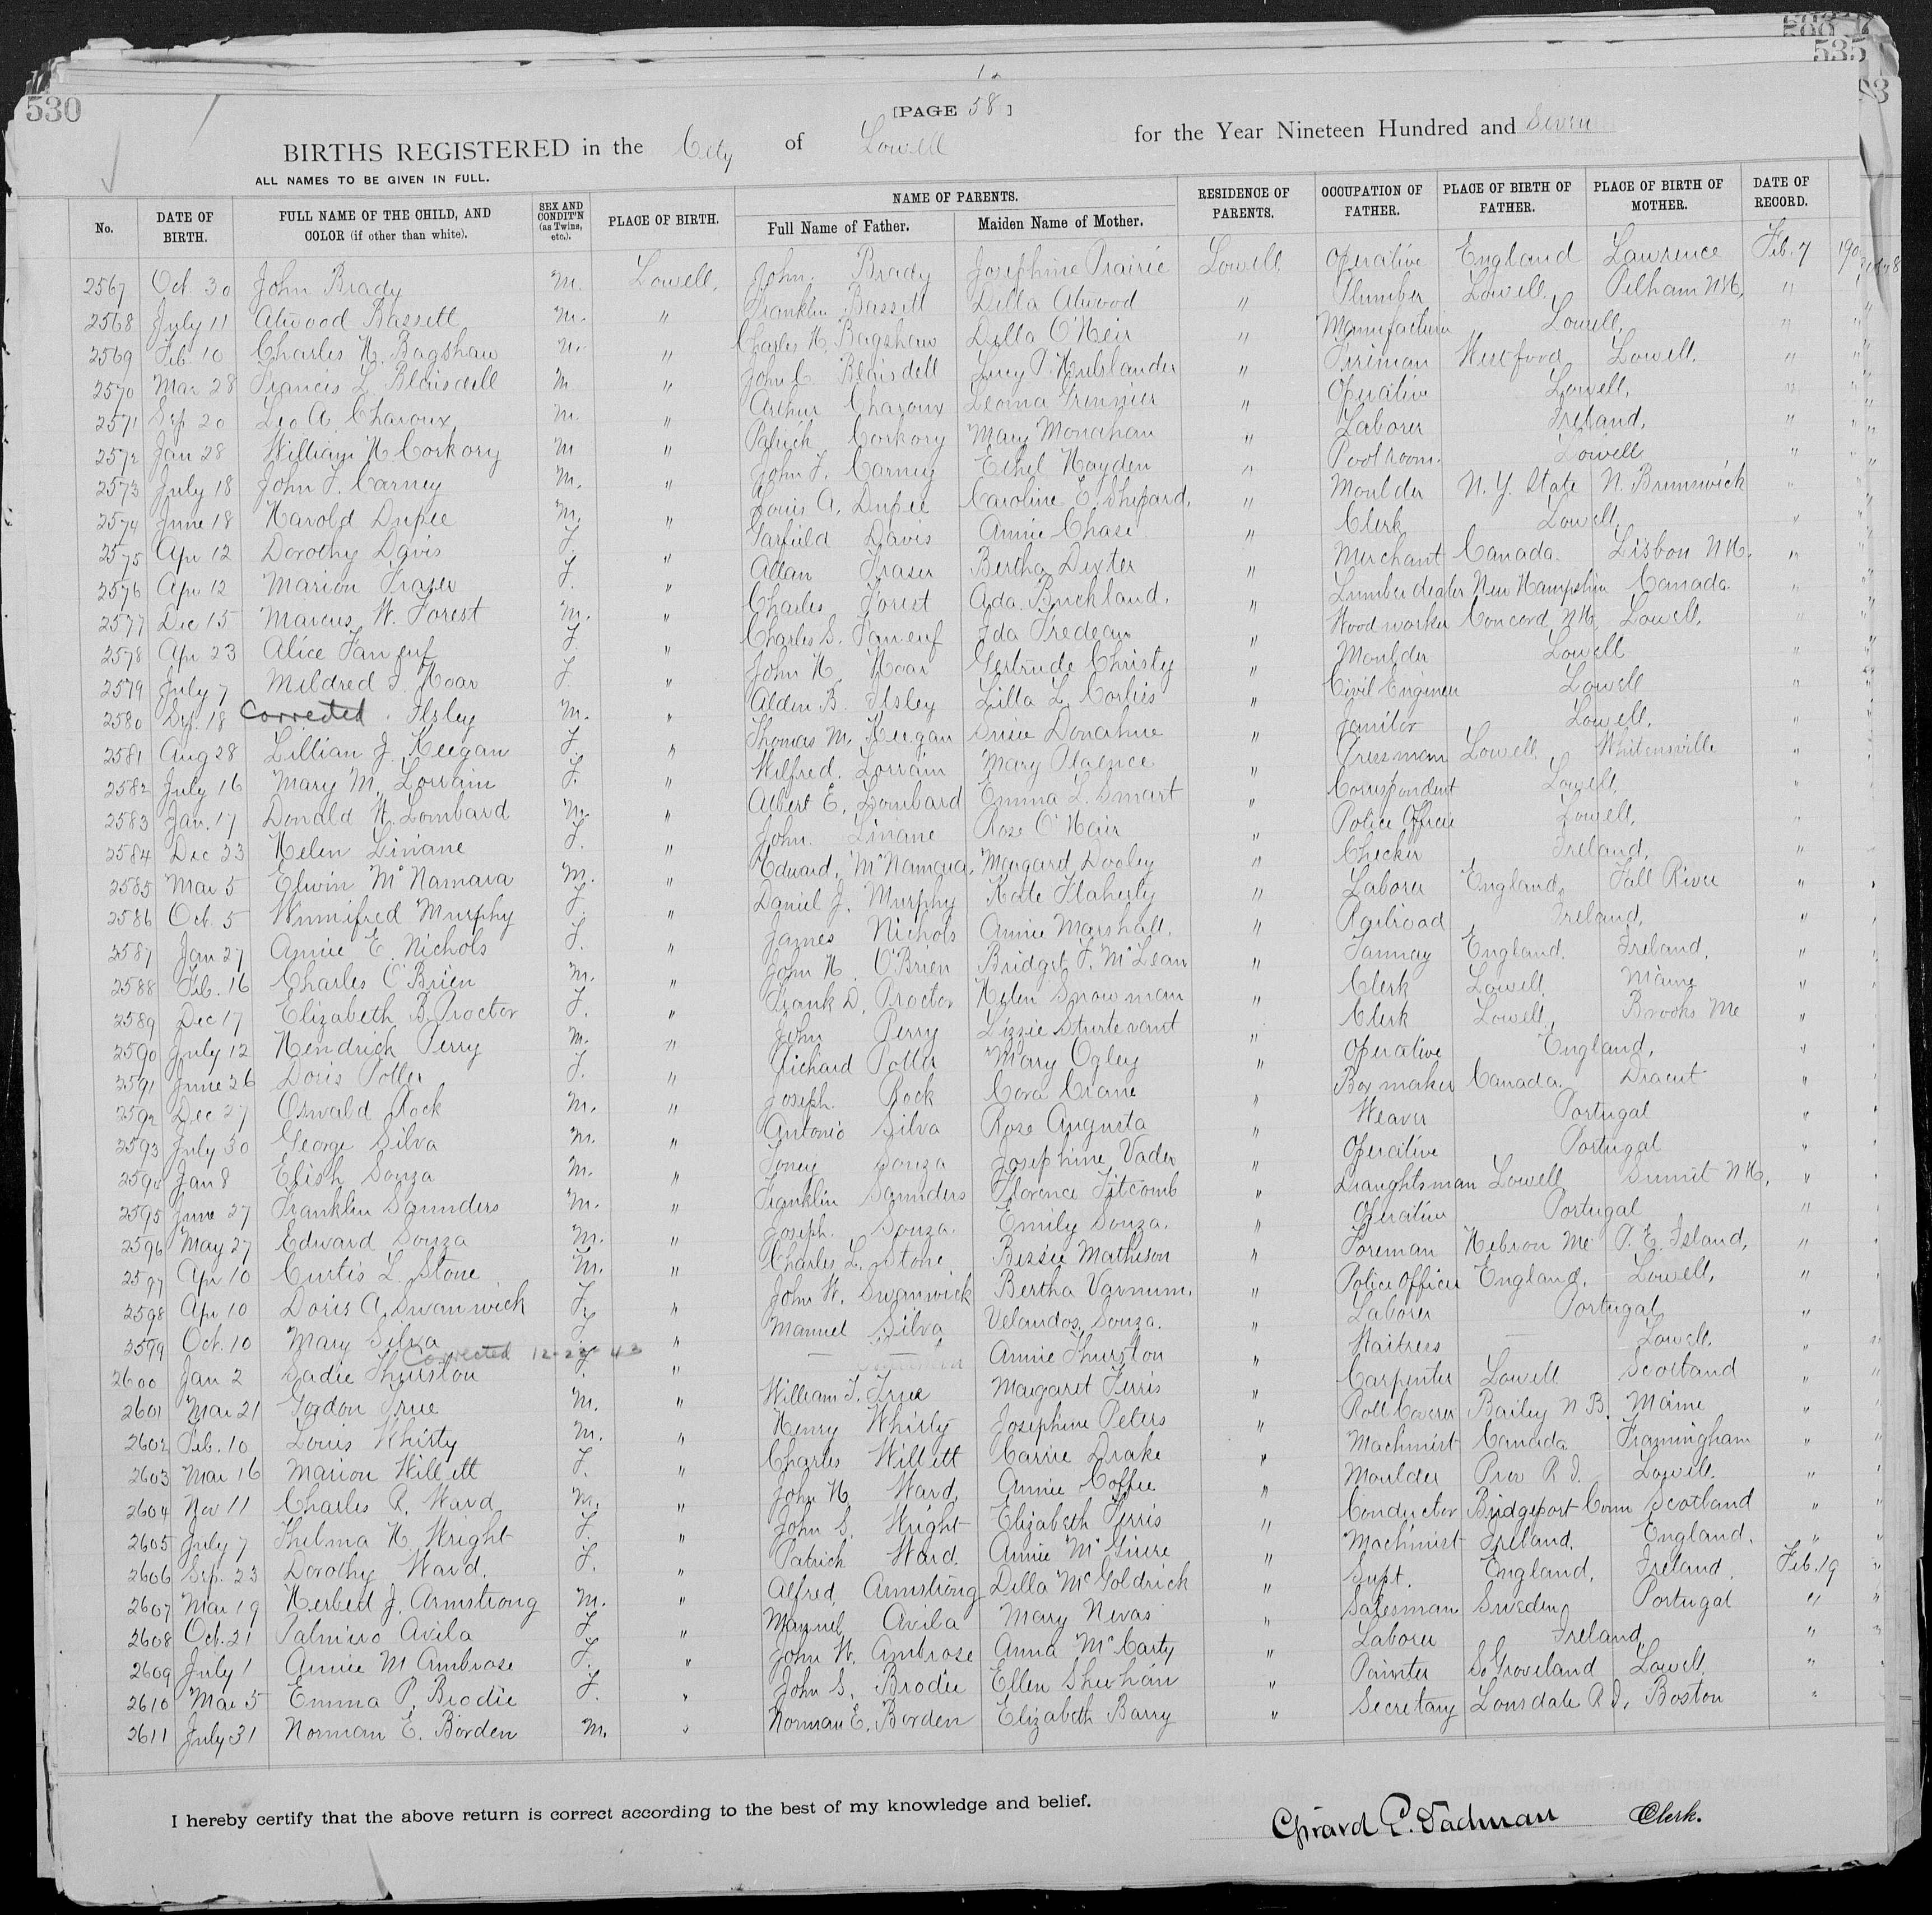 535
530
[PAGE 58]
BIRTHS REGISTERED in the City of Lowell for the Year Nineteen Hundred and Seven
ALL NAMES TO BE GIVEN IN FULL.
No. DATE OF BIRTH. FULL NAME OF THE CHILD, AND COLOR (if other than white). SEX AND CONDIT'N (as Twins, etc.). PLACE OF BIRTH. NAME OF PARENTS. Full Name of Father. Maiden Name of Mother. RESIDENCE OF PARENTS. OCCUPATION OF FATHER. PLACE OF BIRTH OF FATHER. PLACE OF BIRTH OF MOTHER. DATE OF RECORD.
2567 Oct 30 John Brady M. Lowell, John Brady Josephine Prairie Lowell Operative England Lawrence Feb. 7 190
2568 July 11 Atwood Bassett M. " Franklin Bassett Della Atwood " Plumber Lowell, Pelham NH, "
2569 Feb 10 Charles H. Bagshaw M. " Charles H. Bagshaw Della O'Neir " Lowell, "
2570 Mar 28 Francis L Blaisdell M " John C Blaisdell Lucy P. " Fireman Westford Lowell. "
2571 Sep 20 Leo A. Charoux M. " Arthur Charoux Leoma Grennier " Operative Lowell, "
2572 Jan 28 William H Corkory M " Patrick Corkory Mary Monahan " Laborer Ireland, "
2573 July 18 John F. Carney M. " John F. Carney Ethel Hayden " Pool room. Lowell "
2574 June 18 Harold Dupee M. " Louis A. Dupee Caroline E. Shepard, " Moulder N. Y. State N. Brunswick "
2575 Apr 12 Dorothy Davis F. " Garfield Davis Annie Chase " Clerk Lowell, "
2576 Apr 12 Marion Fraser F. " Allan Fraser Bertha Dexter " Merchant Canada. Lisbon NH. "
2577 Dec 15 Marcus W. Forest M. " Charles Forest Ada Buckland, " Lumber dealer New Hampshire Canada. "
2578 Apr 23 Alice Faneuf F. " Charles S. Faneuf Ida Fredeau " Wood worker Concord NH, Lowell, "
2579 July 7 Mildred I. Hoar F. " John H. Hoar Gertrude Christy " Moulder Lowell "
2580 Sep. 18 Corrected. Ilsley M. " Alden B. Ilsley Lilla L. Corliss " Civil Engineer Lowell "
2581 Aug 28 Lillian J. Keegan F. " Thomas M. Keegan Susie Donahue " Janitor Lowell. "
2582 July 16 Mary M. Lorrain F. " Wilfred. Lorrain Mary Plaence " Pressman Lowell. Whitensville "
2583 Jan. 17 Donald W. Lombard M. " Albert E. Lombard Emma L. Smart " Correspondent Lowell, "
2584 Dec 23 Helen Linane F. " John Linane Rose O'Hair " Police Officer Lowell, "
2585 Mar 5 Edwin McNamara M. " Edward. McNamara, Margard Dooley " Checker Ireland, "
2586 Oct. 5 Winnifred Murphy F. " Daniel J. Murphy Kate Flaherty " Laborer England, Fall River "
2587 Jan 27 Annie E. Nichols F. " James Nichols Annie Marshall. " Railroad Ireland, "
2588 Feb. 16 Charles O'Brien M. " John H. O'Brien Bridget F. McLean " England. Ireland, "
2589 Dec 17 Elizabeth B. Proctor F. " Frank D. Proctor Helen Snowman " Clerk Lowell Maine "
2590 July 12 Hendrick Perry M. " John Perry Lizzie Sturtevant " Clerk Lowell, Brooks Me "
2591 June 26 Doris Potter F. " Richard Potter Mary Ogley " Operative England, "
2592 Dec 27 Oswald Rock M. " Joseph. Rock Cora Crane " Box maker Canada. Dracut "
2593 July 30 George Silva M. " Antonio Silva Rose Augusta " Weaver Portugal "
2594 Jan 8 Elish Souza M. " Toney Souza Josephine Vader " Operative Portugal "
2595 June 27 Franklin Saunders M. " Franklin Saunders Florence Titcomb " Draughtsman Lowell Sumit NH, "
2596 May 27 Edward Souza M. " Joseph. Souza. Emily Souza. " Operative Portugal "
2597 Apr 10 Curtis L. Stone M. " Charles L. Stone Bessie Matheson " Foreman Hebron Me P. E. Island, "
2598 Apr 10 Doris A. Swanwick F. " John W. Swanwick Bertha Varnum, " Police Officer England. Lowell, "
2599 Oct. 10 Mary Silva F. " Manuel Silva Velandos Souza. " Laborer Portugal "
Corrected 12-23-43
2600 Jan 2 Sadie Thurston F. " — Annie Thurston " Waitress — Lowell. "
2601 Mar 21 Gordon True M. " William T. True Margaret Ferris " Carpenter Lowell Scotland "
2602 Feb. 10 Louis Whirty M. " Henry Whirty Josephine Peters " Roll Coverer Bailey N B. Maine "
2603 Mar 16 Marion Willett F. " Charles Willett Carrie Drake " Machinist Canada Framingham "
2604 Nov 11 Charles R. Ward M. " John H. Ward. Annie Coffee " Moulder Prov R I. Lowell. "
2605 July 7 Thelma H. Wright F. " John S. Wright Elizabeth Ferris " Conductor Bridgeport Conn Scotland "
2606 Sep. 23 Dorothy Ward. F. " Patrick Ward. Annie McGuire " Machinist Ireland. England. "
2607 Mar 19 Herbert J. Armstrong M. " Alfred Armstrong Della McGoldrick " Supt. England, Ireland. Feb. 19 "
2608 Oct. 21 Palmiro Avila F. " Manuel Avila Mary Nevas " Salesman Sweden Portugal "
2609 July 1 Annie M Ambrose F. " John W. Ambrose Anna McCarty " Laborer Ireland "
2610 Mar 5 Emma P. Brodie F. " John S. Brodie Ellen Sheehan " Painter So Groveland Lowell. "
2611 July 31 Norman E. Borden M. " Norman E. Borden Elizabeth Barry " Secretary Lonsdale R I. Boston "
I hereby certify that the above return is correct according to the best of my knowledge and belief.
Girard P. Dadman Clerk.